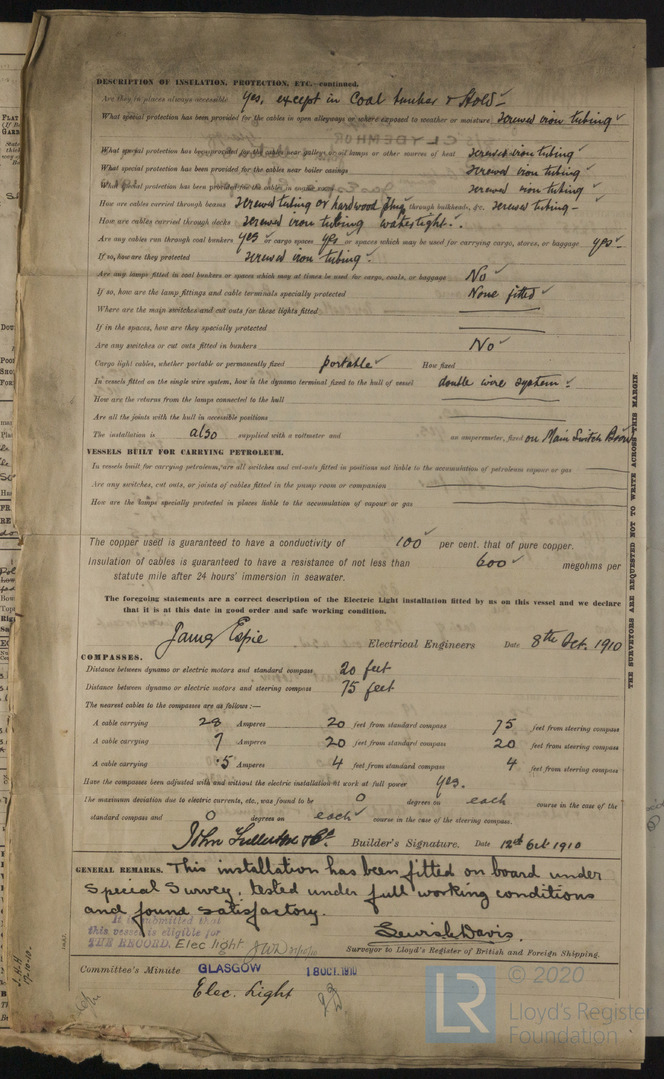 DESCRIPTION OF INSULATION, PROTECTION, ETC.—continued.
Are they in places always accessible Yes, except in Coal bunker & Hold
What special protection has been provided for the cables in open alleyways or where exposed to weather or moisture screwed iron tubing
CLYDEMHOR
What special protection has been provided for the cables near galleys or oil lamps or other sources of heat screwed iron tubing
What special protection has been provided for the cables near boiler casings screwed iron tubing
What special protection has been provided for the cables in engine room screwed iron tubing
How are cables carried through beams screwed tubing or hardwood plug through bulkheads, &c. screwed tubing
How are cables carried through decks screwed iron tubing watertight.
Are any cables run through coal bunkers yes or cargo spaces yes or spaces which may be used for carrying cargo, stores, or baggage yes
If so, how are they protected screwed iron tubing.
Are any lamps fitted in coal bunkers or spaces which may at times be used for cargo, coals, or baggage No
If so, how are the lamp fittings and cable terminals specially protected None fitted
Where are the main switches and cut outs for these lights fitted
If in the spaces, how are they specially protected
Are any switches or cut outs fitted in bunkers No
Cargo light cables, whether portable or permanently fixed portable How fixed
In vessels fitted on the single wire system, how is the dynamo terminal fixed to the hull of vessel double wire system.
How are the returns from the lamps connected to the hull
Are all the joints with the hull in accessible positions
The installation is also supplied with a voltmeter and an amperemeter, fixed on Main Switch Board
VESSELS BUILT FOR CARRYING PETROLEUM.
In vessels built for carrying petroleum, are all switches and cut-outs fitted in positions not liable to the accumulation of petroleum vapour or gas
Are any switches, cut outs, or joints of cables fitted in the pump room or companion
How are the lamps specially protected in places liable to the accumulation of vapour or gas
The copper used is guaranteed to have a conductivity of 100 per cent. that of pure copper.
Insulation of cables is guaranteed to have a resistance of not less than 600 megohms per
statute mile after 24 hours' immersion in seawater.
The foregoing statements are a correct description of the Electric Light installation fitted by us on this vessel and we declare
that it is at this date in good order and safe working condition.
James Espie Electrical Engineers Date 8th Oct. 1910
COMPASSES.
Distance between dynamo or electric motors and standard compass 20 feet
Distance between dynamo or electric motors and steering compass 75 feet
The nearest cables to the compasses are as follows:—
A cable carrying 28 Amperes 20 feet from standard compass 75 feet from steering compass
A cable carrying 7 Amperes 20 feet from standard compass 20 feet from steering compass
A cable carrying .5 Amperes 4 feet from standard compass 4 feet from steering compass
Have the compasses been adjusted with and without the electric installation at work at full power Yes.
The maximum deviation due to electric currents, etc., was found to be 0 degrees on each course in the case of the
standard compass and 0 degrees on each course in the case of the steering compass.
John Fullerton & Co. Builder's Signature. Date 12th Oct 1910
GENERAL REMARKS. This installation has been fitted on board under
Special Survey, tested under full working conditions
and found satisfactory.
It is submitted that
this vessel is eligible for
THE RECORD. Elec light
Surveyor to Lloyd's Register of British and Foreign Shipping.
Committee's Minute GLASGOW 18 OCT. 1910
Elec. Light
THE SURVEYORS ARE REQUESTED NOT TO WRITE ACROSS THIS MARGIN.
© 2020
LR
Lloyd's Register
Foundation